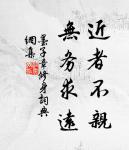 近者不親
無務求遠
墨子章修身詞典
網集